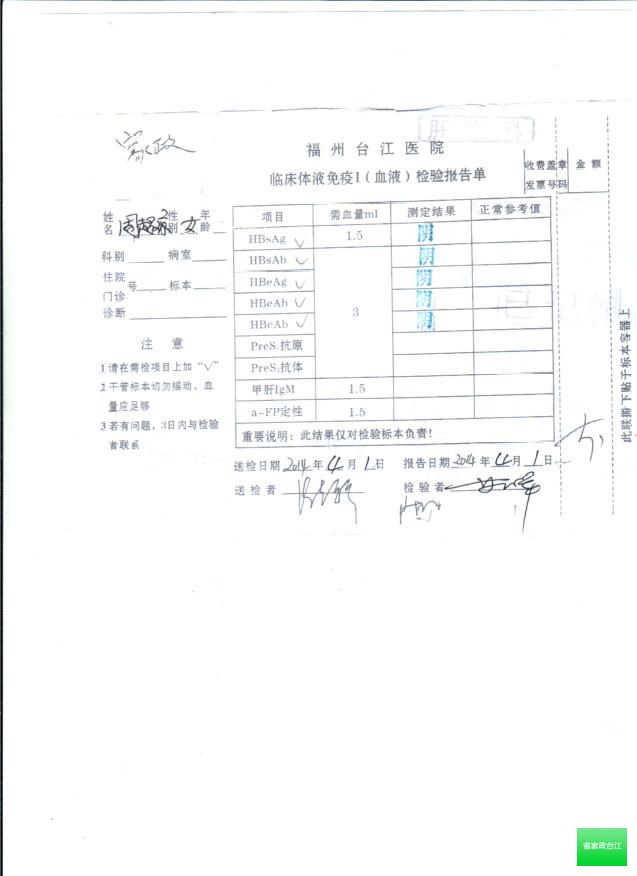 家政
福州台江医院
临床体液免疫I（血液）检验报告单
收费盖章 金额
发票号码
姓名 性别 女 年龄
科别 病室
住院
门诊 号 标本
诊断
注意
1 请在需检项目上加“√”
2 干管标本切勿摇动，血
量应足够
3 若有问题，3日内与检验
者联系
项目 需血量ml 测定结果 正常参考值
HBsAg √ 1.5 阴
HBsAb √ 阴
HBeAg √ 阴
HBeAb √ 3 阴
HBcAb √ 阴
PreS₁抗原
PreS₁抗体
甲肝IgM 1.5
a-FP定性 1.5
重要说明：此结果仅对检验标本负责！
送检日期 2014年4月1日 报告日期 2014年4月1日
送检者 检验者
此联撕下贴于标本容器上
省家政台江